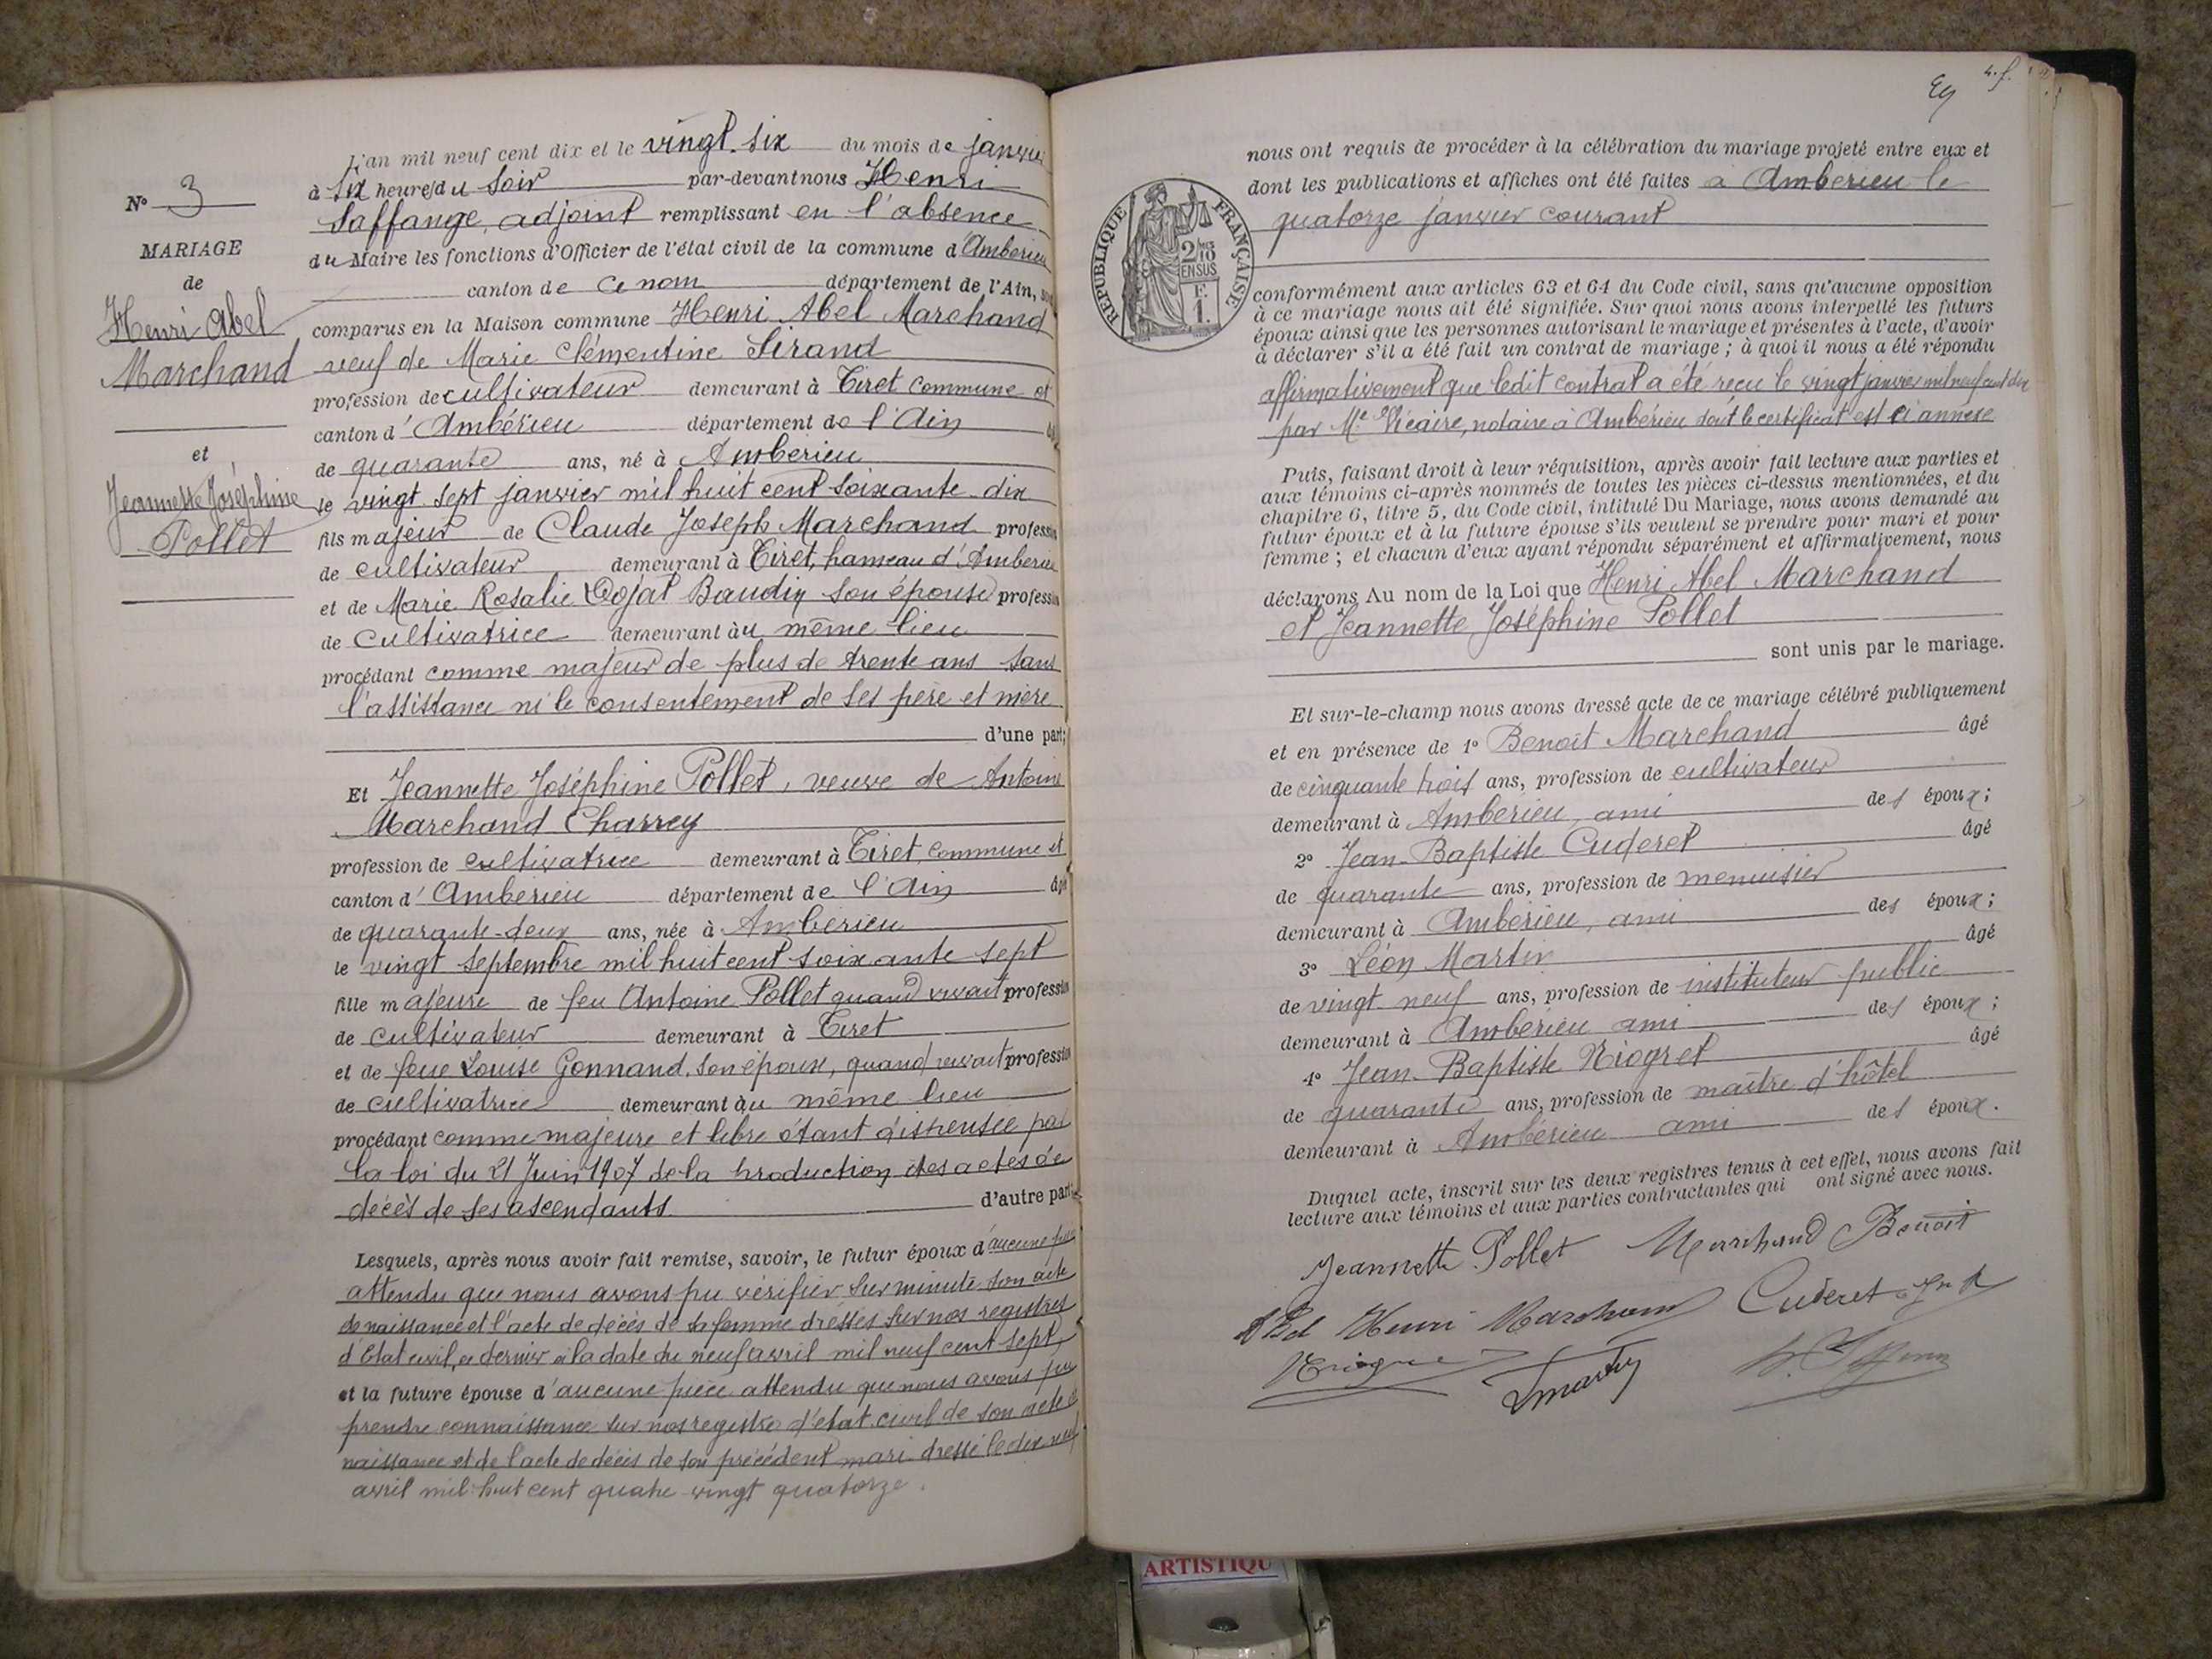 N° 3
MARIAGE
de
Henri Abel
Marchand
et
Jeannette Joséphine
Pollet
L'an mil neuf cent dix et le vingt-six du mois de janvier
à six heures du soir par-devant nous Henri
Saffange, adjoint remplissant en l'absence
du Maire les fonctions d'Officier de l'état civil de la commune d'Ambérieu
canton de ce nom département de l'Ain, sont
comparus en la Maison commune Henri Abel Marchand
veuf de Marie Clémentine Sirand
profession de cultivateur demeurant à Tiret commune et
canton d'Ambérieu département de l'Ain
de quarante ans, né à Ambérieu
le vingt sept janvier mil huit cent soixante-dix
fils majeur de Claude Joseph Marchand profession
de cultivateur demeurant à Tiret, hameau d'Ambérieu
et de Marie Rosalie Dojat Baudin son épouse profession
de cultivatrice demeurant au même lieu
procédant comme majeur de plus de trente ans sans
l'assistance ni le consentement de ses père et mère
d'une part;
Et Jeannette Joséphine Pollet, veuve de Antoine
Marchand Charrey
profession de cultivatrice demeurant à Tiret, commune et
canton d'Ambérieu département de l'Ain âgée
de quarante-deux ans, née à Ambérieu
le vingt septembre mil huit cent soixante sept
fille majeure de feu Antoine Pollet quand vivait profession
de cultivateur demeurant à Tiret
et de feue Louise Gonnand, son épouse, quand vivait profession
de cultivatrice demeurant au même lieu
procédant comme majeure et libre étant dispensée par
la loi du 21 Juin 1907 de la production des actes de
décès de ses ascendants d'autre part;
Lesquels, après nous avoir fait remise, savoir, le futur époux d'aucune pièce
attendu que nous avons pu vérifier sur minute son acte
de naissance et l'acte de décès de sa femme dressés sur nos registres
d'Etat civil, ce dernier à la date du neuf avril mil neuf cent sept
et la future épouse d'aucune pièce attendu que nous avons pu
prendre connaissance sur nos registres d'état civil de son acte de
naissance et de l'acte de décès de son précédent mari dressé le dix neuf
avril mil huit cent quatre-vingt quatorze.
nous ont requis de procéder à la célébration du mariage projeté entre eux et
dont les publications et affiches ont été faites à Ambérieu le
quatorze janvier courant
REPUBLIQUE FRANÇAISE
2/10
EN SUS
F.
1.
conformément aux articles 63 et 64 du Code civil, sans qu'aucune opposition
à ce mariage nous ait été signifiée. Sur quoi nous avons interpellé les futurs
époux ainsi que les personnes autorisant le mariage et présentes à l'acte, d'avoir
à déclarer s'il a été fait un contrat de mariage; à quoi il nous a été répondu
affirmativement que ledit contrat a été reçu le vingt janvier mil neuf cent dix
par Me Vicaire, notaire à Ambérieu dont le certificat est ci annexé
Puis, faisant droit à leur réquisition, après avoir fait lecture aux parties et
aux témoins ci-après nommés de toutes les pièces ci-dessus mentionnées, et du
chapitre 6, titre 5, du Code civil, intitulé Du Mariage, nous avons demandé au
futur époux et à la future épouse s'ils veulent se prendre pour mari et pour
femme; et chacun d'eux ayant répondu séparément et affirmativement, nous
déclarons Au nom de la Loi que Henri Abel Marchand
et Jeannette Joséphine Pollet
sont unis par le mariage.
Et sur-le-champ nous avons dressé acte de ce mariage célébré publiquement
et en présence de 1° Benoit Marchand âgé
de cinquante trois ans, profession de cultivateur
demeurant à Ambérieu, ami des époux;
2° Jean-Baptiste Cuderet âgé
de quarante ans, profession de menuisier
demeurant à Ambérieu, ami des époux;
3° Léon Martin âgé
de vingt neuf ans, profession de instituteur public
demeurant à Ambérieu ami des époux;
4° Jean-Baptiste Niogret âgé
de quarante ans, profession de maître d'hôtel
demeurant à Ambérieu ami des époux.
Duquel acte, inscrit sur les deux registres tenus à cet effet, nous avons fait
lecture aux témoins et aux parties contractantes qui ont signé avec nous.
Jeannette Pollet Marchand Benoit
Abel Henri Marchand Cuderet
Niogret LMartin
ARTISTIQU